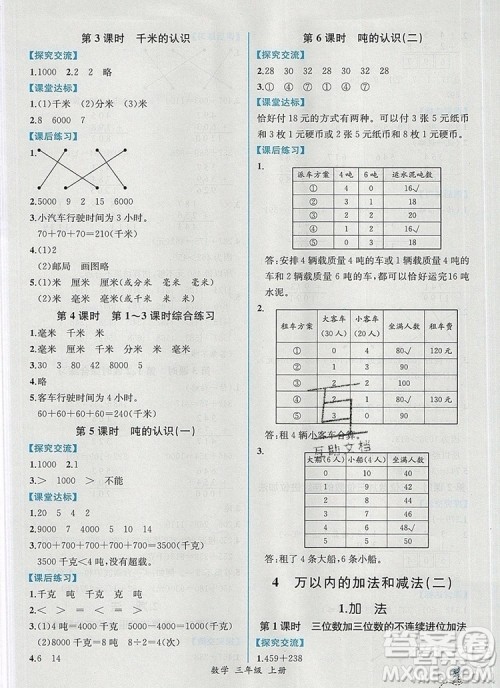 第3课时 千米的认识
【探究交流】
1.1000 2.2 略
【课堂达标】
1.(1)千米 (2)千米
2.8 6000 7
【课后练习】
1.
2.千米 米 分米
3.小汽车行驶时间为3小时。
70+70+70=210(千米)
4.(1)2
(2)邮局 画图略
5.米 厘米 厘米(或分米 或毫米) 毫米
米 厘米 毫米(或厘米 或分米) 毫米
第4课时 第1~3课时综合练习
1.毫米 千米 米
2.千米 厘米 毫米 毫米
4.略
5.客车行驶时间为4小时。
60+60+60+60=240(千米)
第5课时 吨的认识(一)
【探究交流】
1.1000 2.1
3.> 1000 > 不能
【课堂达标】
1.吨 克 千克 吨 千克
2.9000 8 4000 5 10 14
3.700+700+700+700+700=3500(千克)
3500千克<4吨,可以一次运走。
【课后练习】
1.克 吨 千克 吨 千克
2.> > < = = <
3.(1)4吨=4000千克 5000-4000=1000(千克)
(2)9吨-8吨=1吨 1吨=1000千克
(3)700千克+300千克=1000千克=1吨
1.6 14
第6课时 吨的认识(二)
【探究交流】
2.28 30 28 30 32 34
3.① ④ ① ④ ①
【课堂达标】
恰好付18元的方式有两种。可以付3张5元纸币
和3枚1元硬币或2张5元纸币和8枚1元硬币。
【课后练习】
1.
派车方案 4吨 6吨 运水泥吨数
① 4 0 16√
② 3 1 18
③ 2 2 20
④ 1 2 16√
⑤ 0 3 18
答:安排4辆载质量4吨的车或安排1辆载质量4吨
的车和2辆载质量6吨的车,都可以恰好运完16吨
水泥。
2.
租车方案 大客车(30人) 小客车(20人) 坐满人数 租车费
① 0 4 80√ 120元
② 1 3 90
④ 2 1 80√ 130元
⑤ 3 0 90
答:租4辆小客车合算。
3.
大船(6人) 小船(4人) 坐满人数
0 10 40
1 9 42
2 8 44
3 7 46
4 6 48√
5 5 50
答:租了4条大船,6条小船。
4 万以内的加法和减法(二)
1.加 法
第1课时 三位数加三位数的不连续进位加法
【探究交流】
1.459+238
数学 三年级 上册
百
互助文档